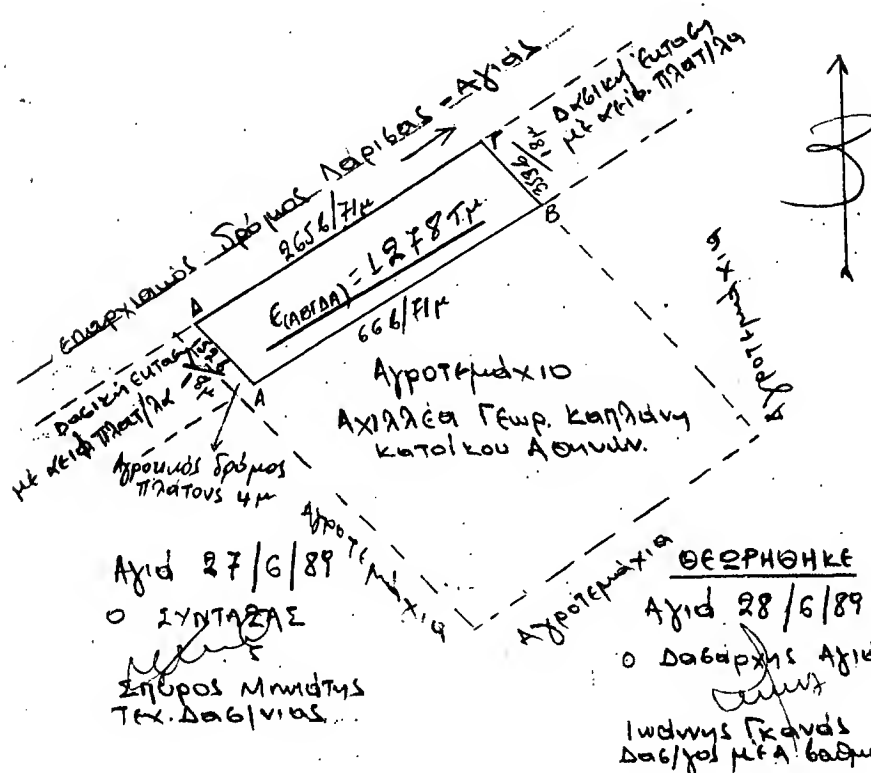 Επαρχιακός δρόμος Λάρισας - Αγιάς
Δασική έκταση
με αειφ. πλατ/λα
265β/71μ
Γ
359β
18μ
Β
Δ
Ε(ΑΒΓΔΑ) = 1278 τ.μ.
66β/71μ
Δασική έκταση
με αειφ. πλατ/λα
18μ
Α
Αγροτικός δρόμος
πλάτους 4μ
Αγροτεμάχιο
Αχιλλέα Γεωρ. Καπλάνη
κατοίκου Αθηνών.
Αγροτεμάχια
Αγροτεμάχια
Αγροτεμάχια
Αγιά 27/6/89
Ο ΣΥΝΤΑΞΑΣ
Σπύρος Μηνιάτης
Τεχ. Δασ/νίας
ΘΕΩΡΗΘΗΚΕ
Αγιά 28/6/89
Ο Δασάρχης Αγιά
Ιωάννης Γκανάς
Δασ/γος με Α βαθμ